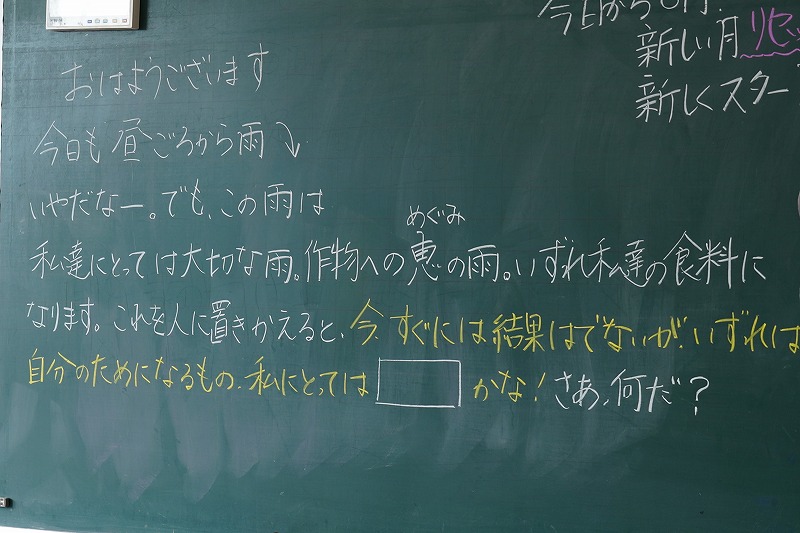 おはようございます
今日も昼ごろから雨⤵
いやだなー。でも、この雨は
私達にとっては大切な雨。作物への恵の雨。いずれ私達の食料に
めぐみ
なります。これを人に置きかえると、今すぐには結果はでないが、いずれは
自分のためになるもの、私にとっては かな！さあ、何だ？
今日から
新しい月リセッ
新しくスター